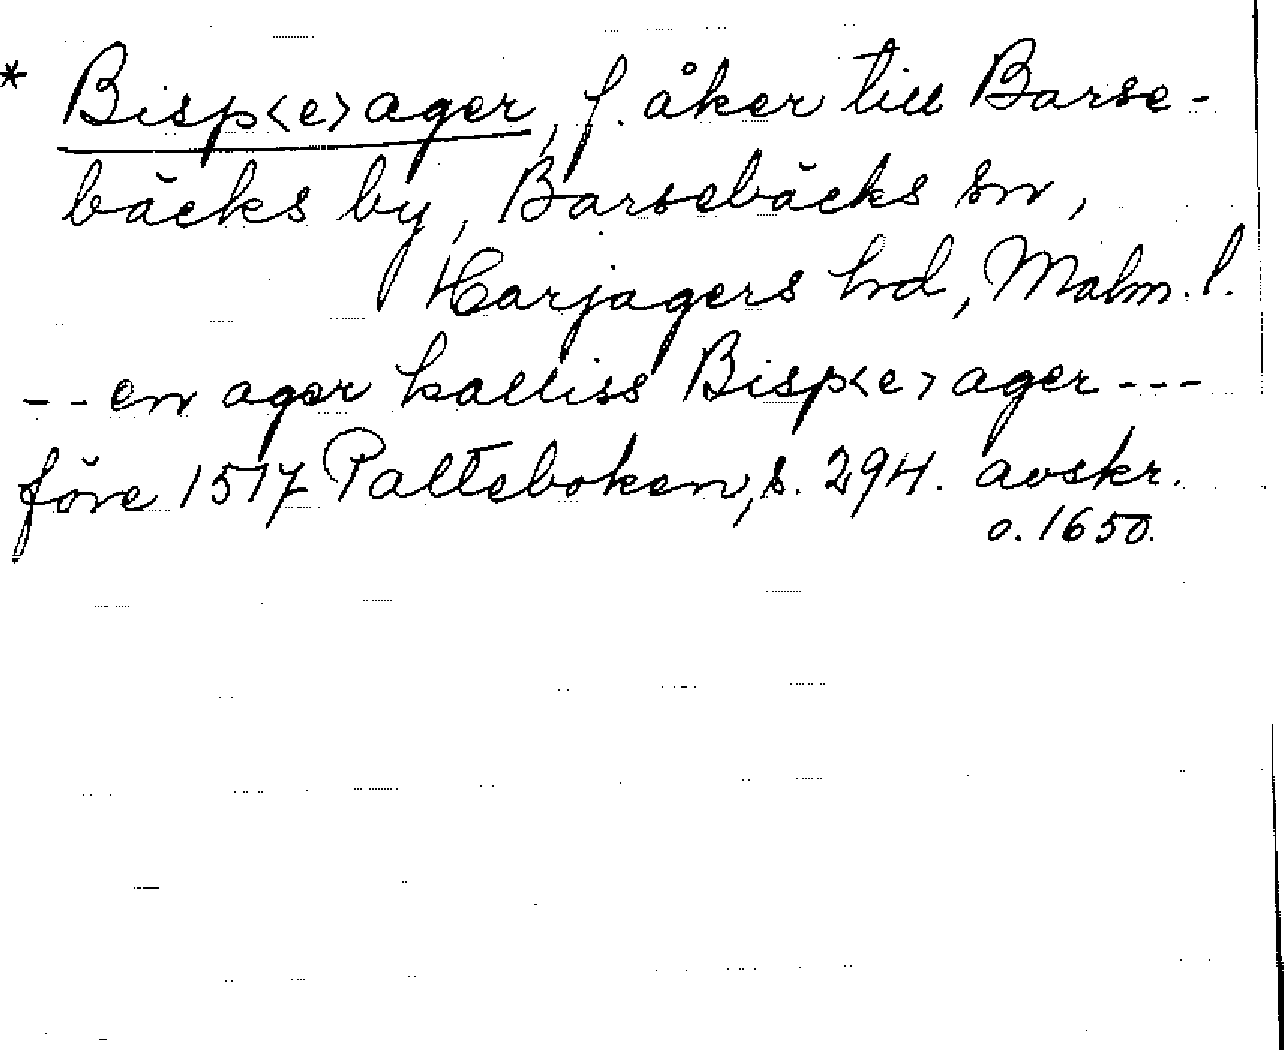 * Bisp<e>ager, f. åker till Barse-
bäcks by, Barsebäcks sn,
Harjagers hd, Malm. l.
-- en ager kalliss Bisp<e>ager ---
före 1517 Palteboken, s. 294. avskr.
o. 1650.